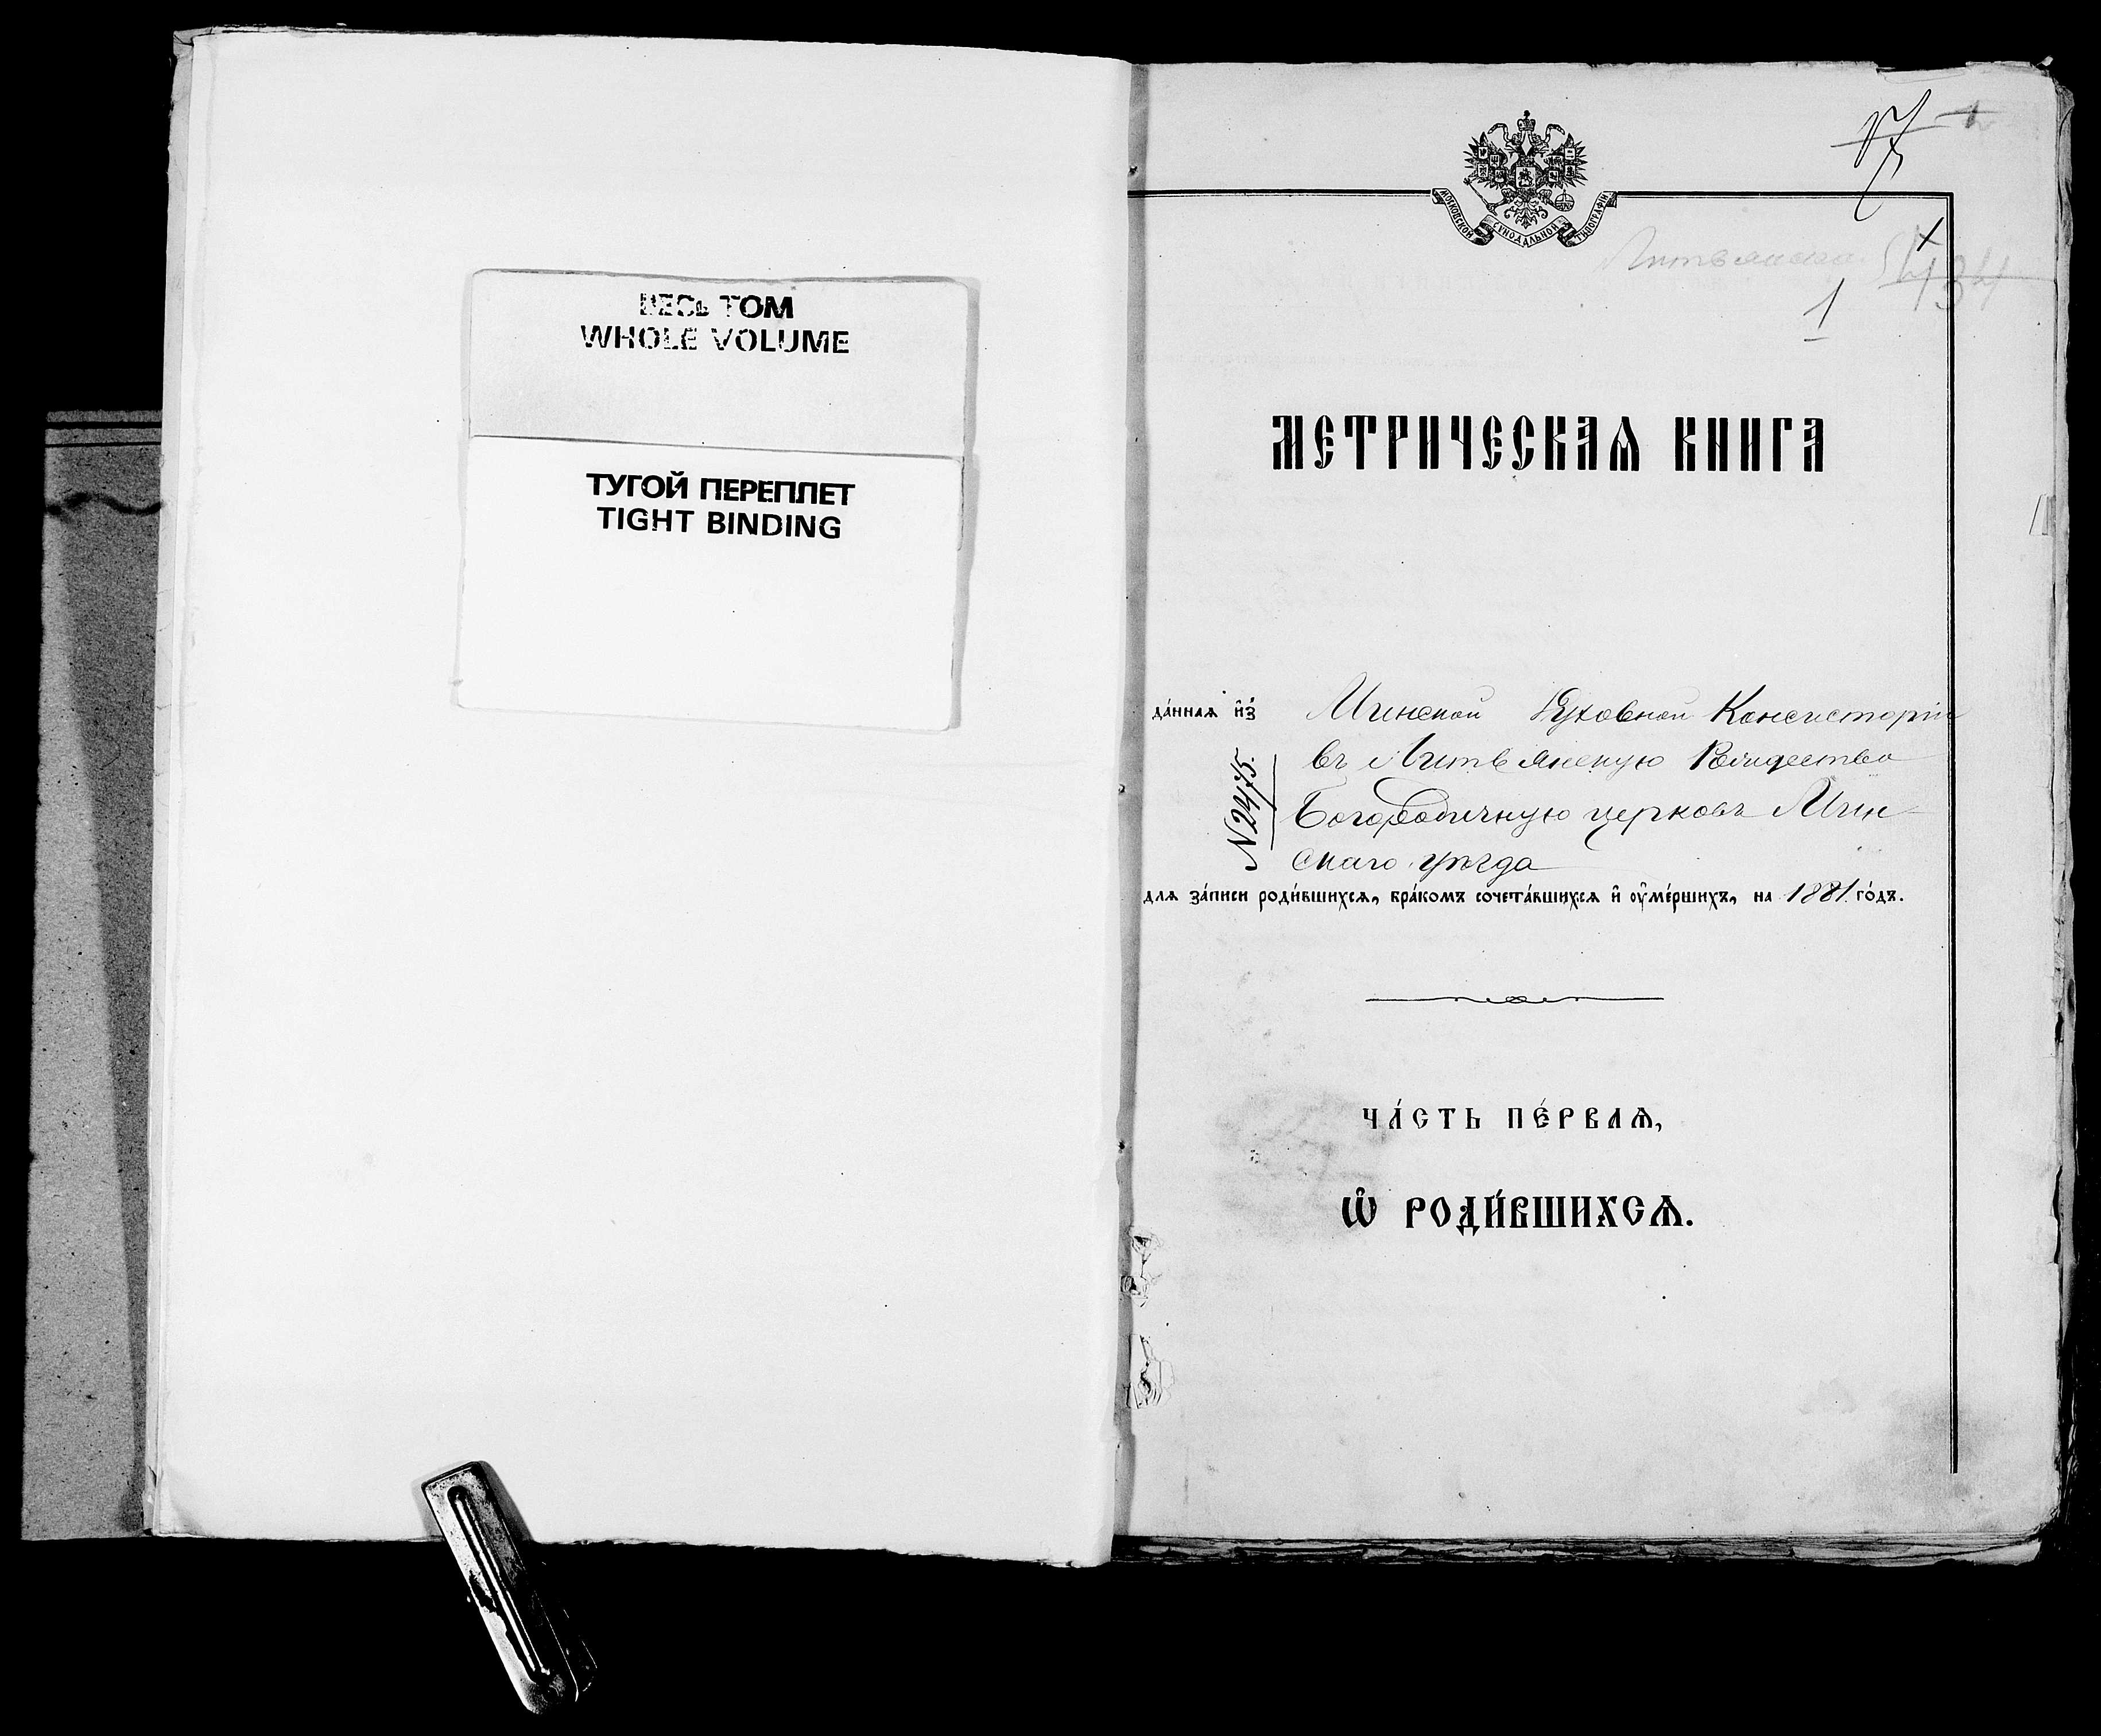 ВЕСЬ ТОМ
WHOLE VOLUME
ТУГОЙ ПЕРЕПЛЕТ
TIGHT BINDING
МОСКОВСКОЙ СѴНОДАЛЬНОЙ ТИПОГРАФІИ
Литвянская
1
МЕТРИЧЕСКАѦ КНИГА
да́ннаѧ и҆з̾ Минской Духовной Консисторіи
въ Литвянскую Рождество
Богородичную церковь Мин-
скаго уѣзда
N 2475.
длѧ за́писи роди́вшихсѧ, бра́комъ сочета́вшихсѧ и҆ ᲂу҆ме́ршихъ, на 1881 го́дъ.
ЧА́СТЬ ПЕ́РВАѦ,
Ѡ҆ РОДИ́ВШИХСѦ.